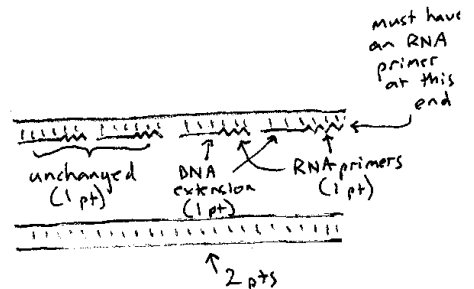 must have
an RNA
primer
at this
end
unchanged
(1 pt)
DNA
extension
(1 pt)
RNA primers
(1 pt)
2 pts